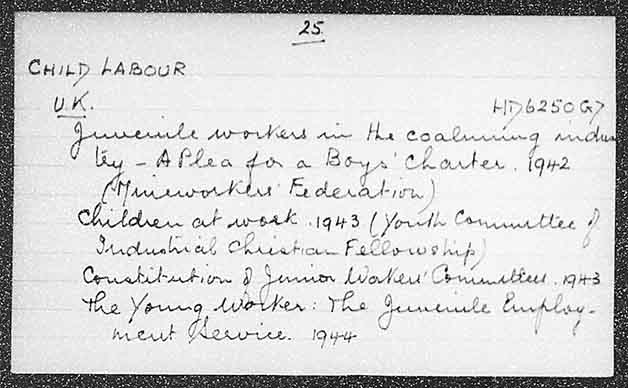 25
CHILD LABOUR
U.K. HD6250G7
Juvenile workers in the coalmining indus
try - A Plea for a Boys' Charter. 1942
(Mineworkers' Federation)
Children at work. 1943 (Youth Committee of
Industrial Christian Fellowship)
Constitution of Junior Workers' Committees. 1943
The Young Worker: The Juvenile Employ-
ment Service. 1944